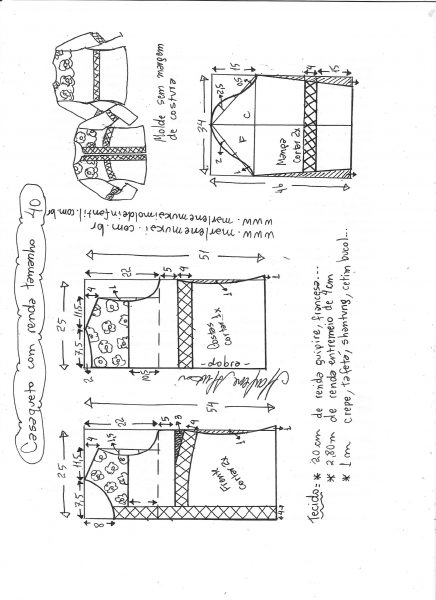 Casaqueto com renda tamanho 40
Molde sem margem
de costura
www.marlenemukai.com.br
www.marlenemukaimoldeinfantil.com.br
25
7,5
11,5
8
4
1,5
22
5
3
4
54
Frente
cortar 2x
4
1
25
7,5
11,5
2
4
1
22
5
4
51
Costas
cortar 1x
-dobra-
1
1
34
15
4
15
46
2
2,5
0,5
1
F
C
Manga
cortar 2x
Marlene Mukai
Tecido= * 20 cm de renda guipire, francesa...
* 2,80m de renda entremeio de 4cm
* 1 m crepe, tafetá, shantung, cetim bucol...